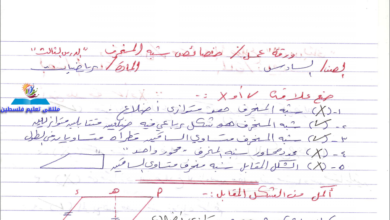 ورقة عمل / خصائص شبه المنحرف "الدرس الثالث"
الصف / السادس المادة / رياضيات
ملتقى تعليم فلسطين
ضع علامة √ أو X :-
١- (X) شبه المنحرف هو متوازي أضلاع.
٢- (√) شبه المنحرف هو شكل رباعي فيه ضلعين متقابلين متوازيين
٣- (√) شبه المنحرف متساوي الساقين قطراه متساويان بالطول
٤- (X) عدد محاور شبه المنحرف "محور واحد"
٥- (X) الشكل المقابل شبه منحرف متساوي الساقين
أكمل من الشكل المقابل :-